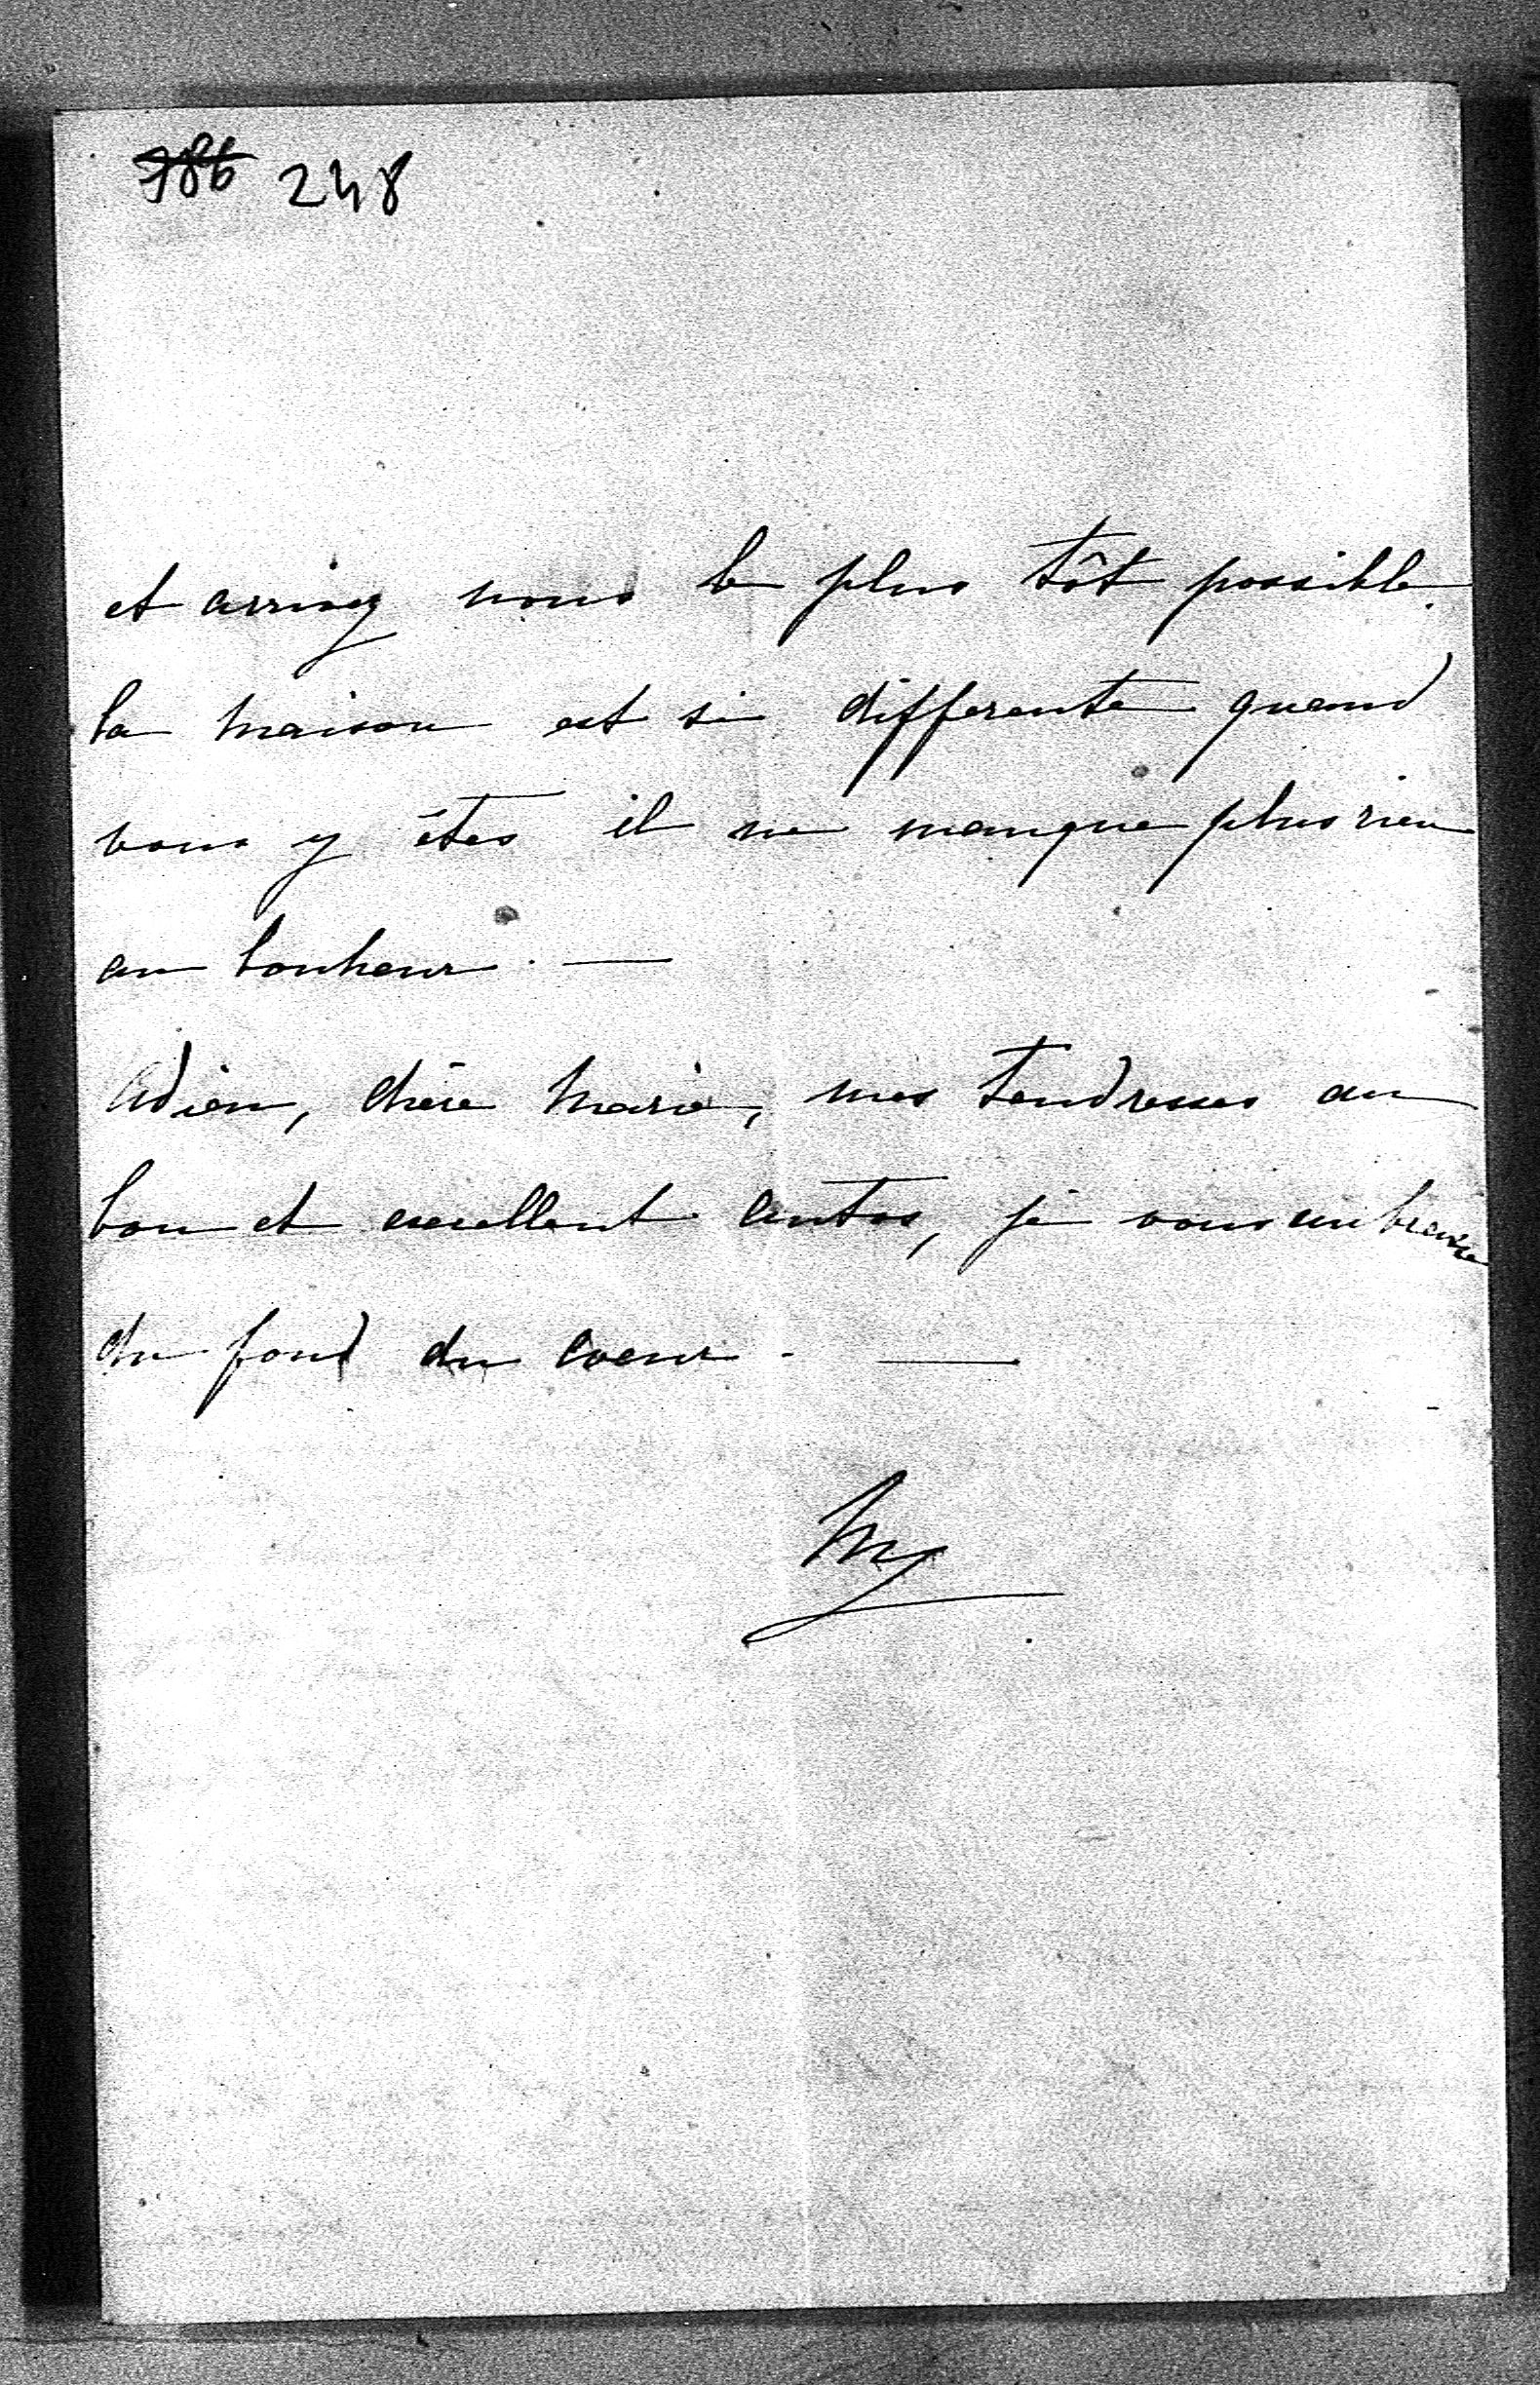 786 248
et arrivez nous le plus tôt possible.
la maison est si differente quand
vous y êtes il ne manque plus rien
au bonheur. —
Adieu, chère Marie, mes tendresses au
bon et excellent Antos, je vous embrasse
du fond du coeur. —
M